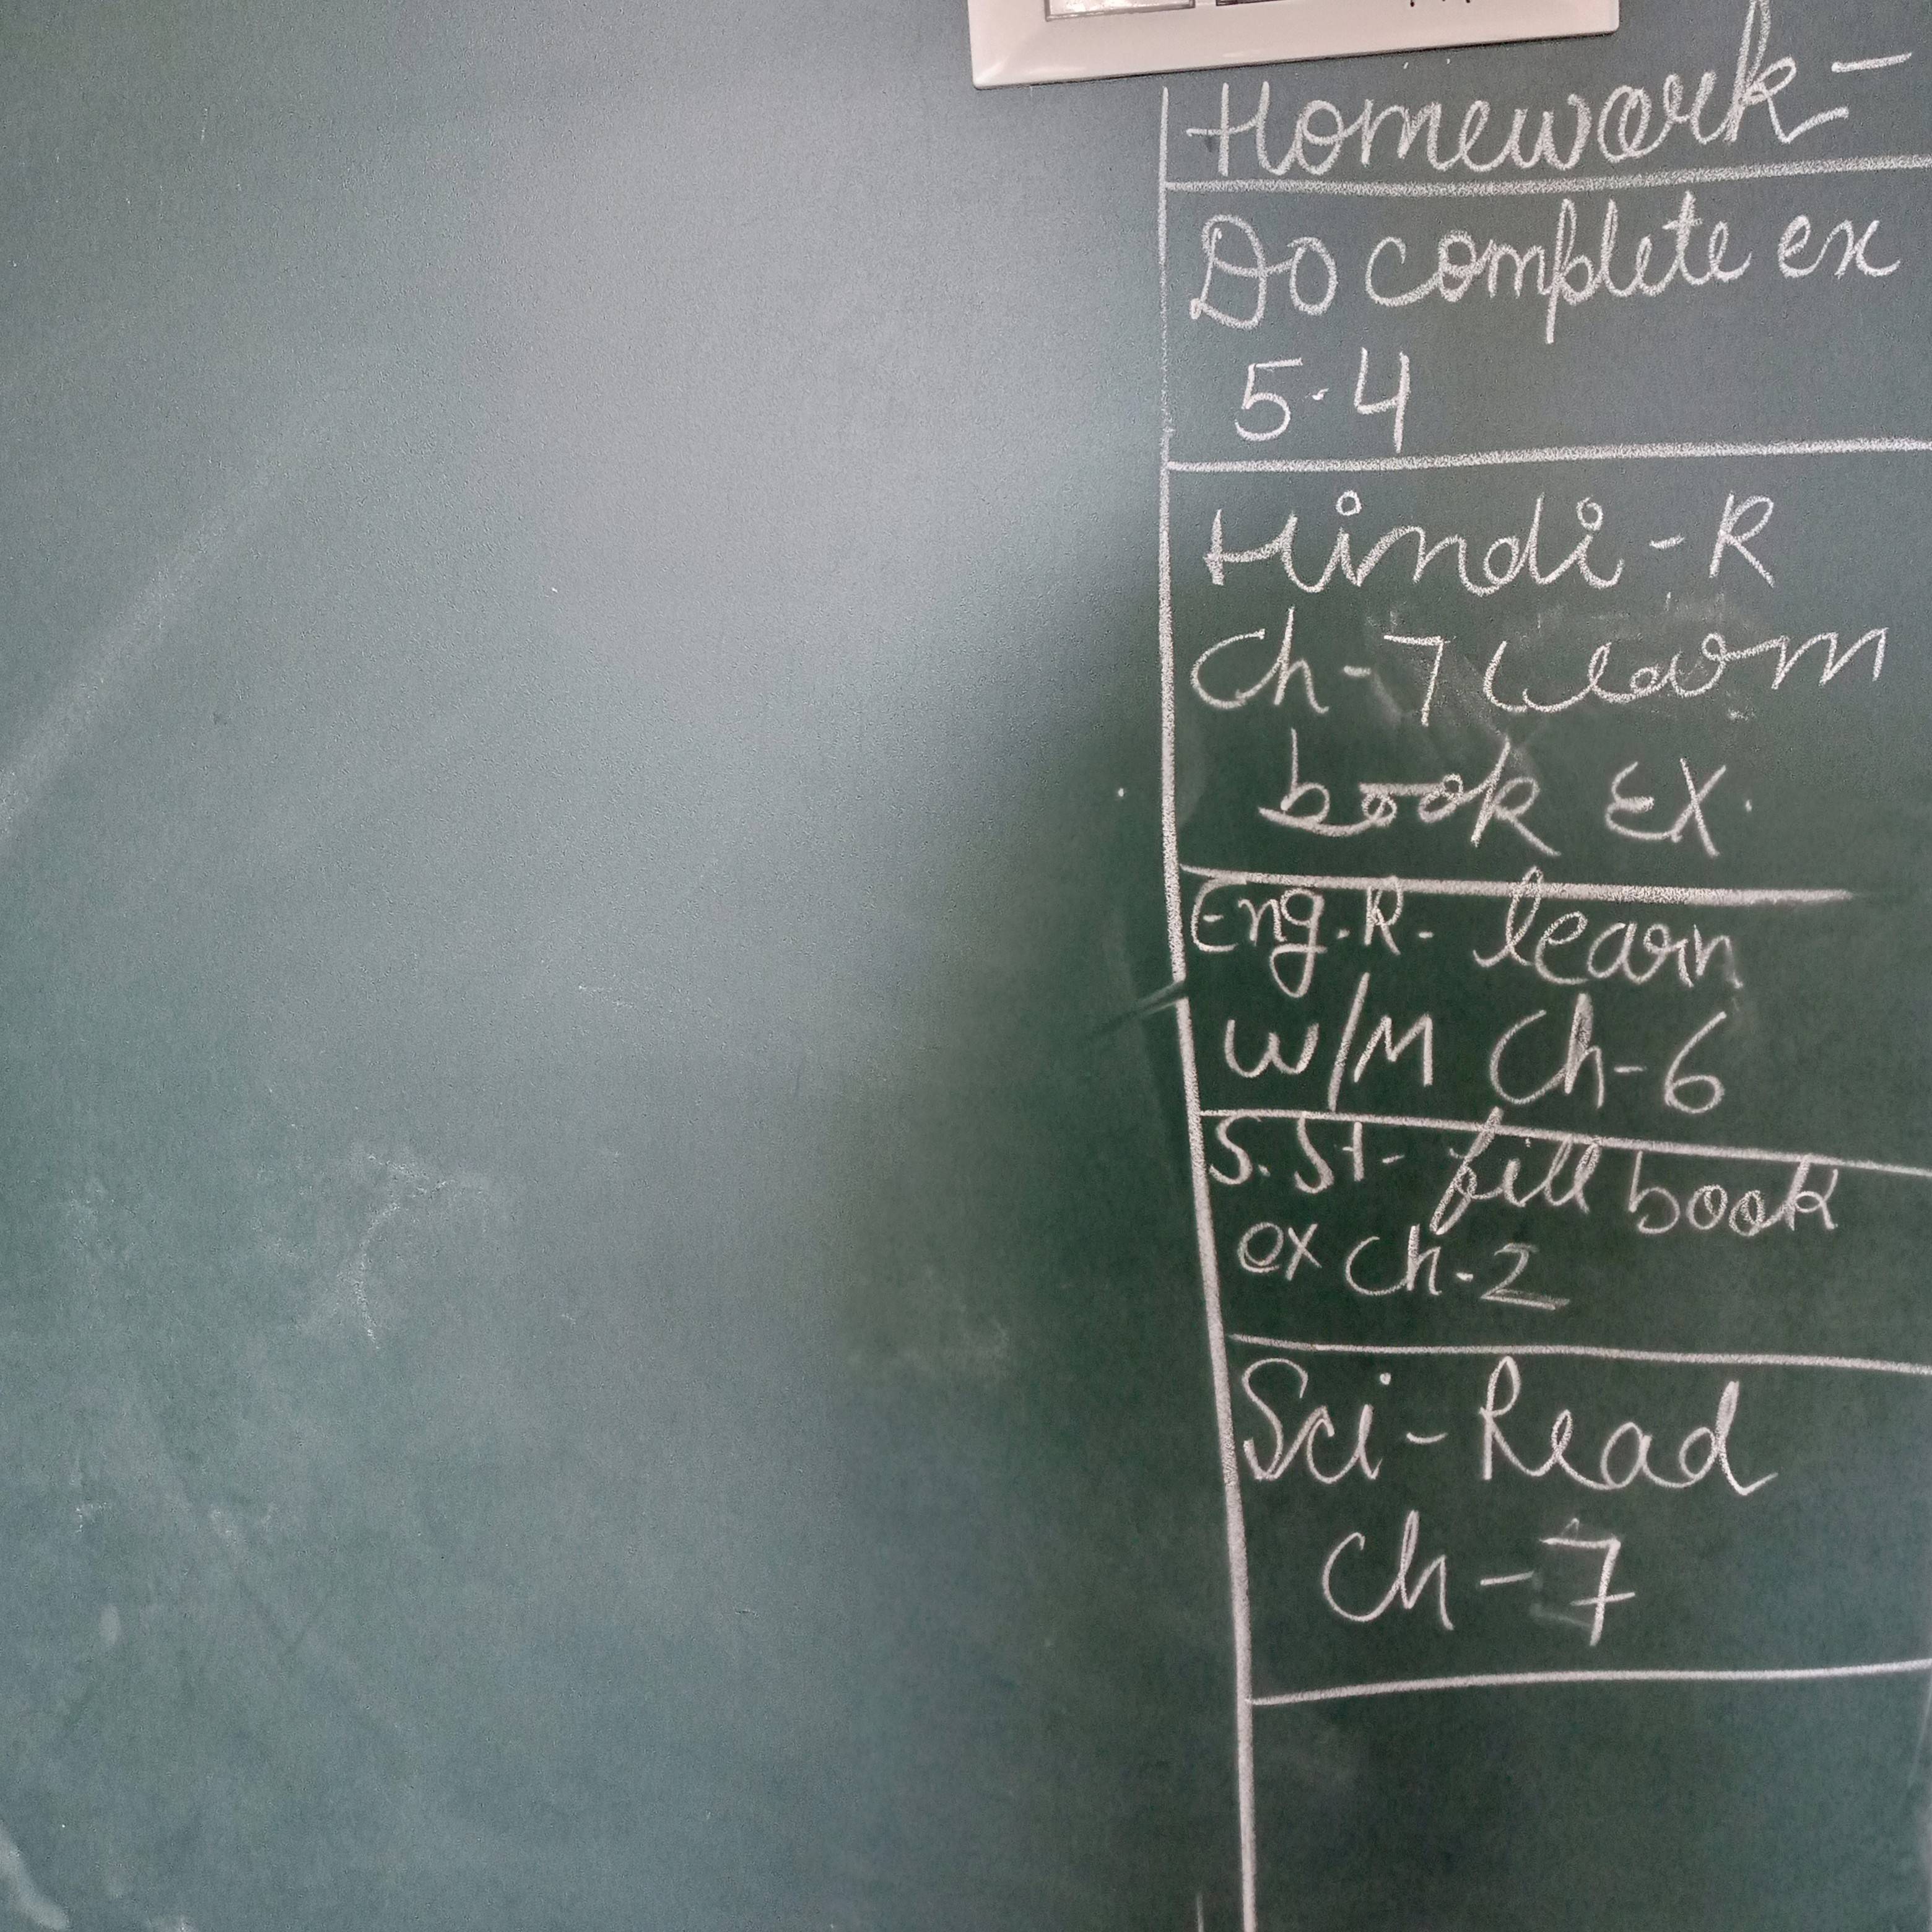 Homework-
Do complete ex
5.4
Hindi - R
Ch-7 Learn
book EX.
Eng.R- learn
W/M Ch-6
S.St- fill book
ex Ch-2
Sci - Read
Ch-7